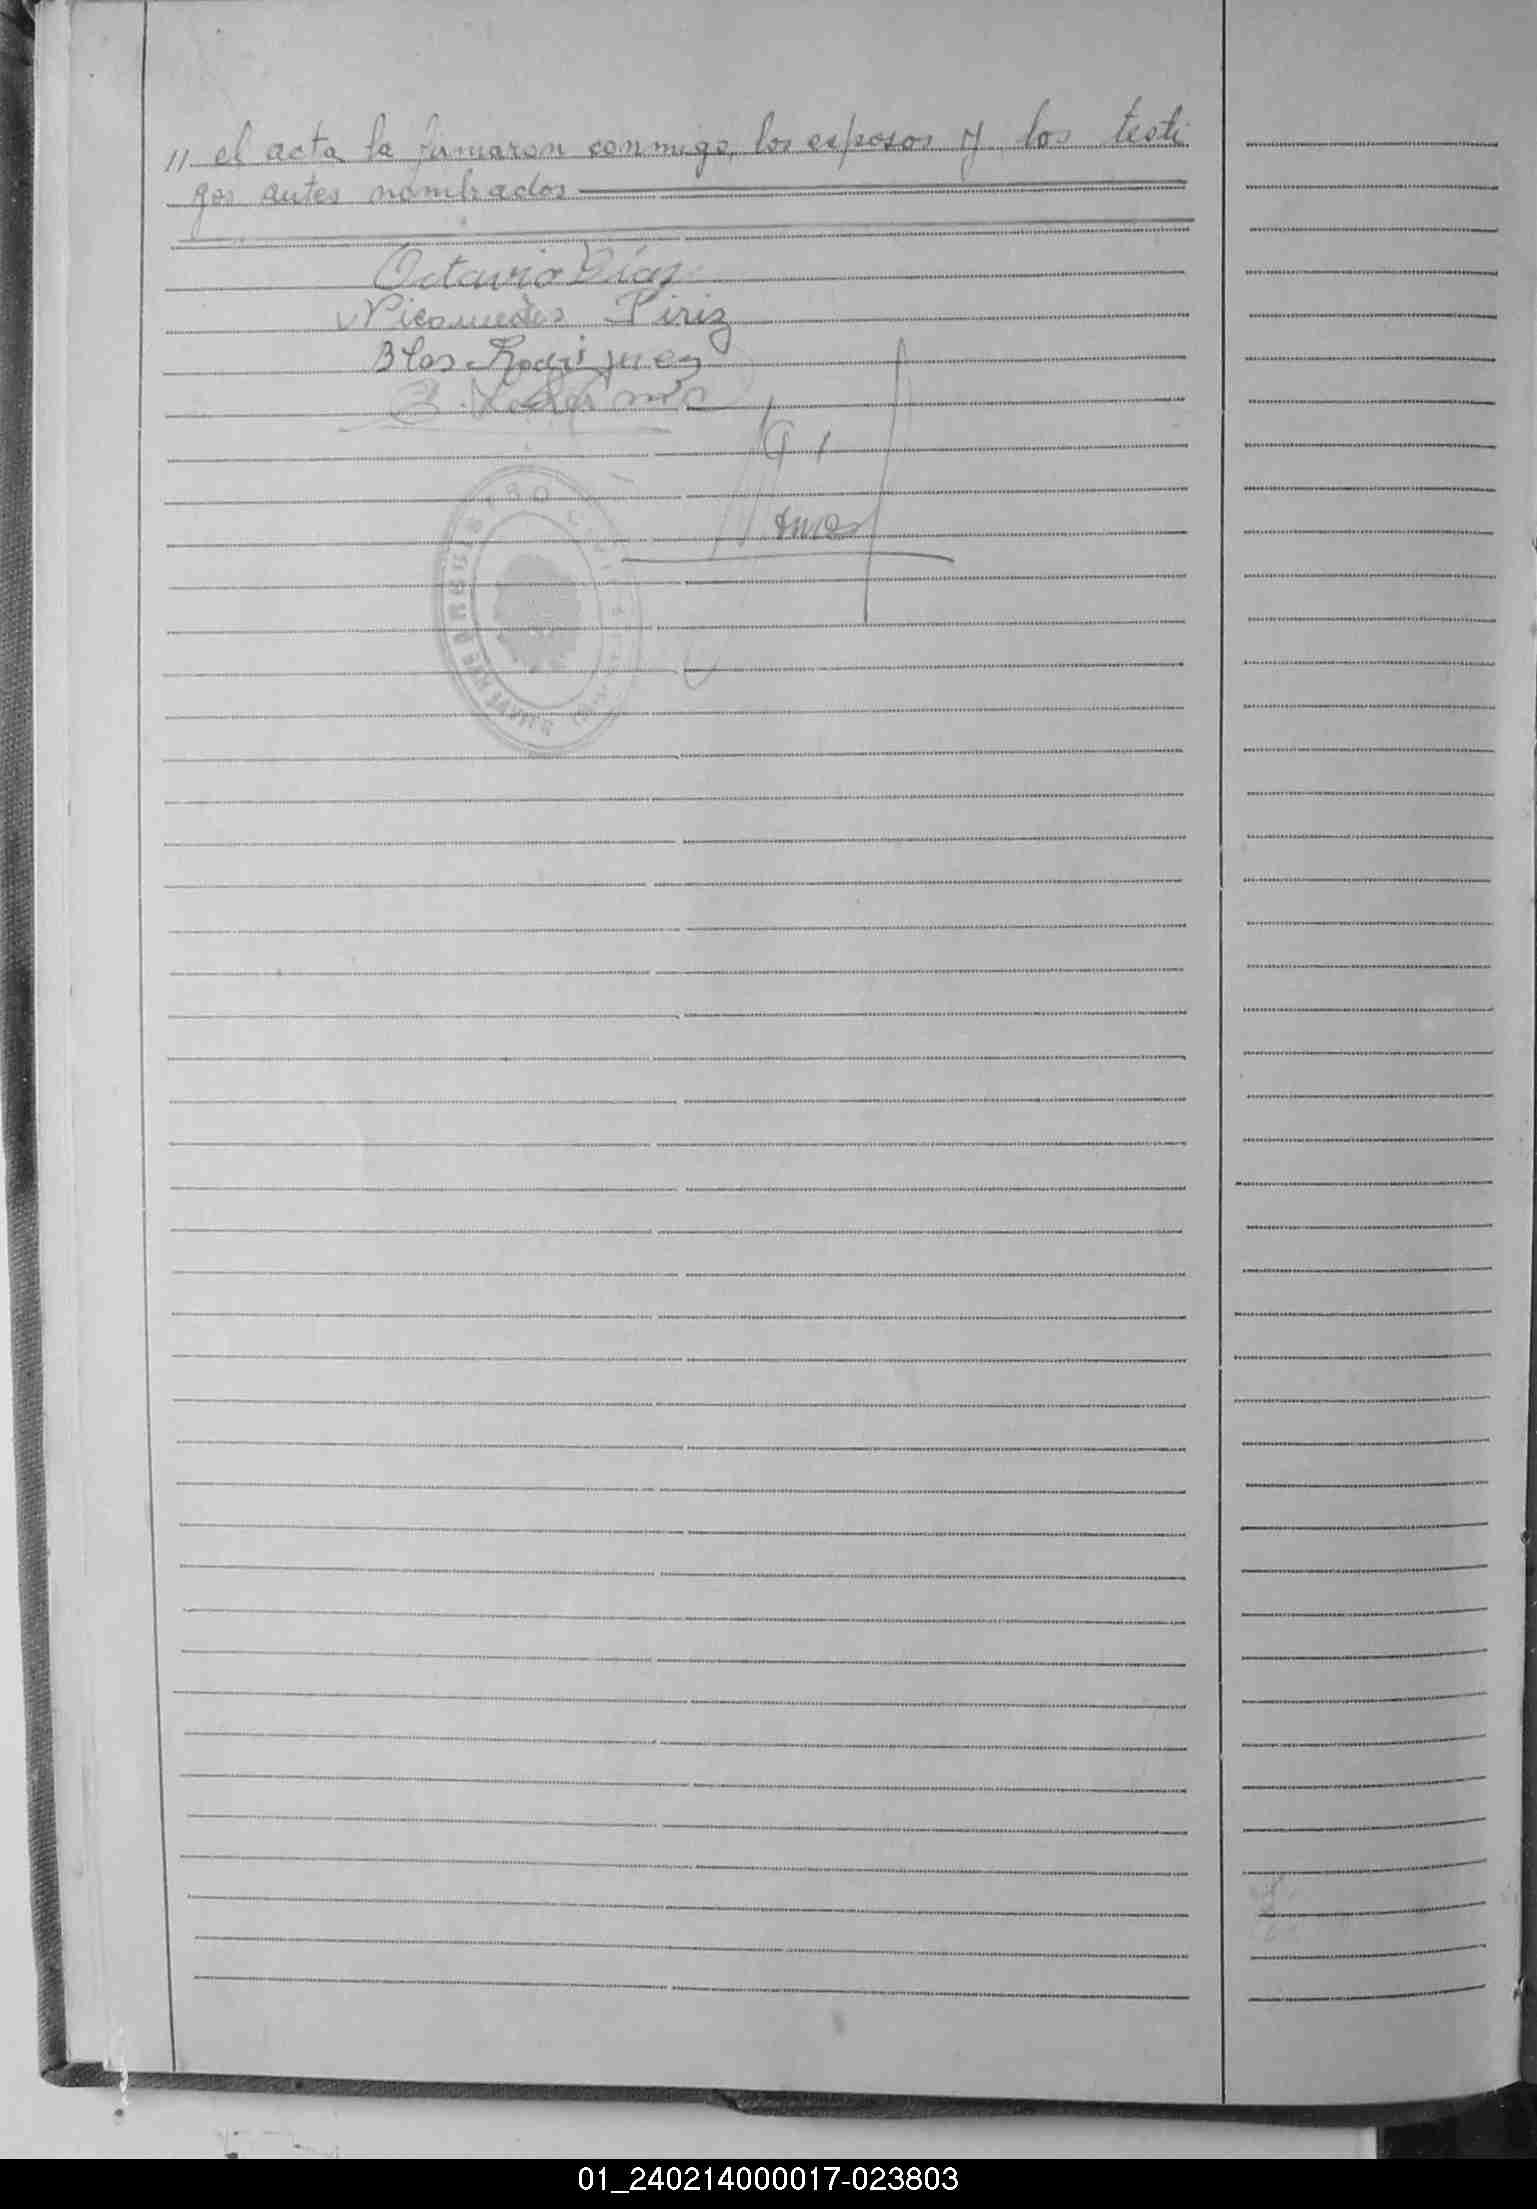 " el acta la firmaron conmigo, los esposos y los testi
gos antes nombrados
Octavio Días
Nicomedes Piriz
Blas Rodriguez
REGISTRO CIVIL
01_240214000017-023803